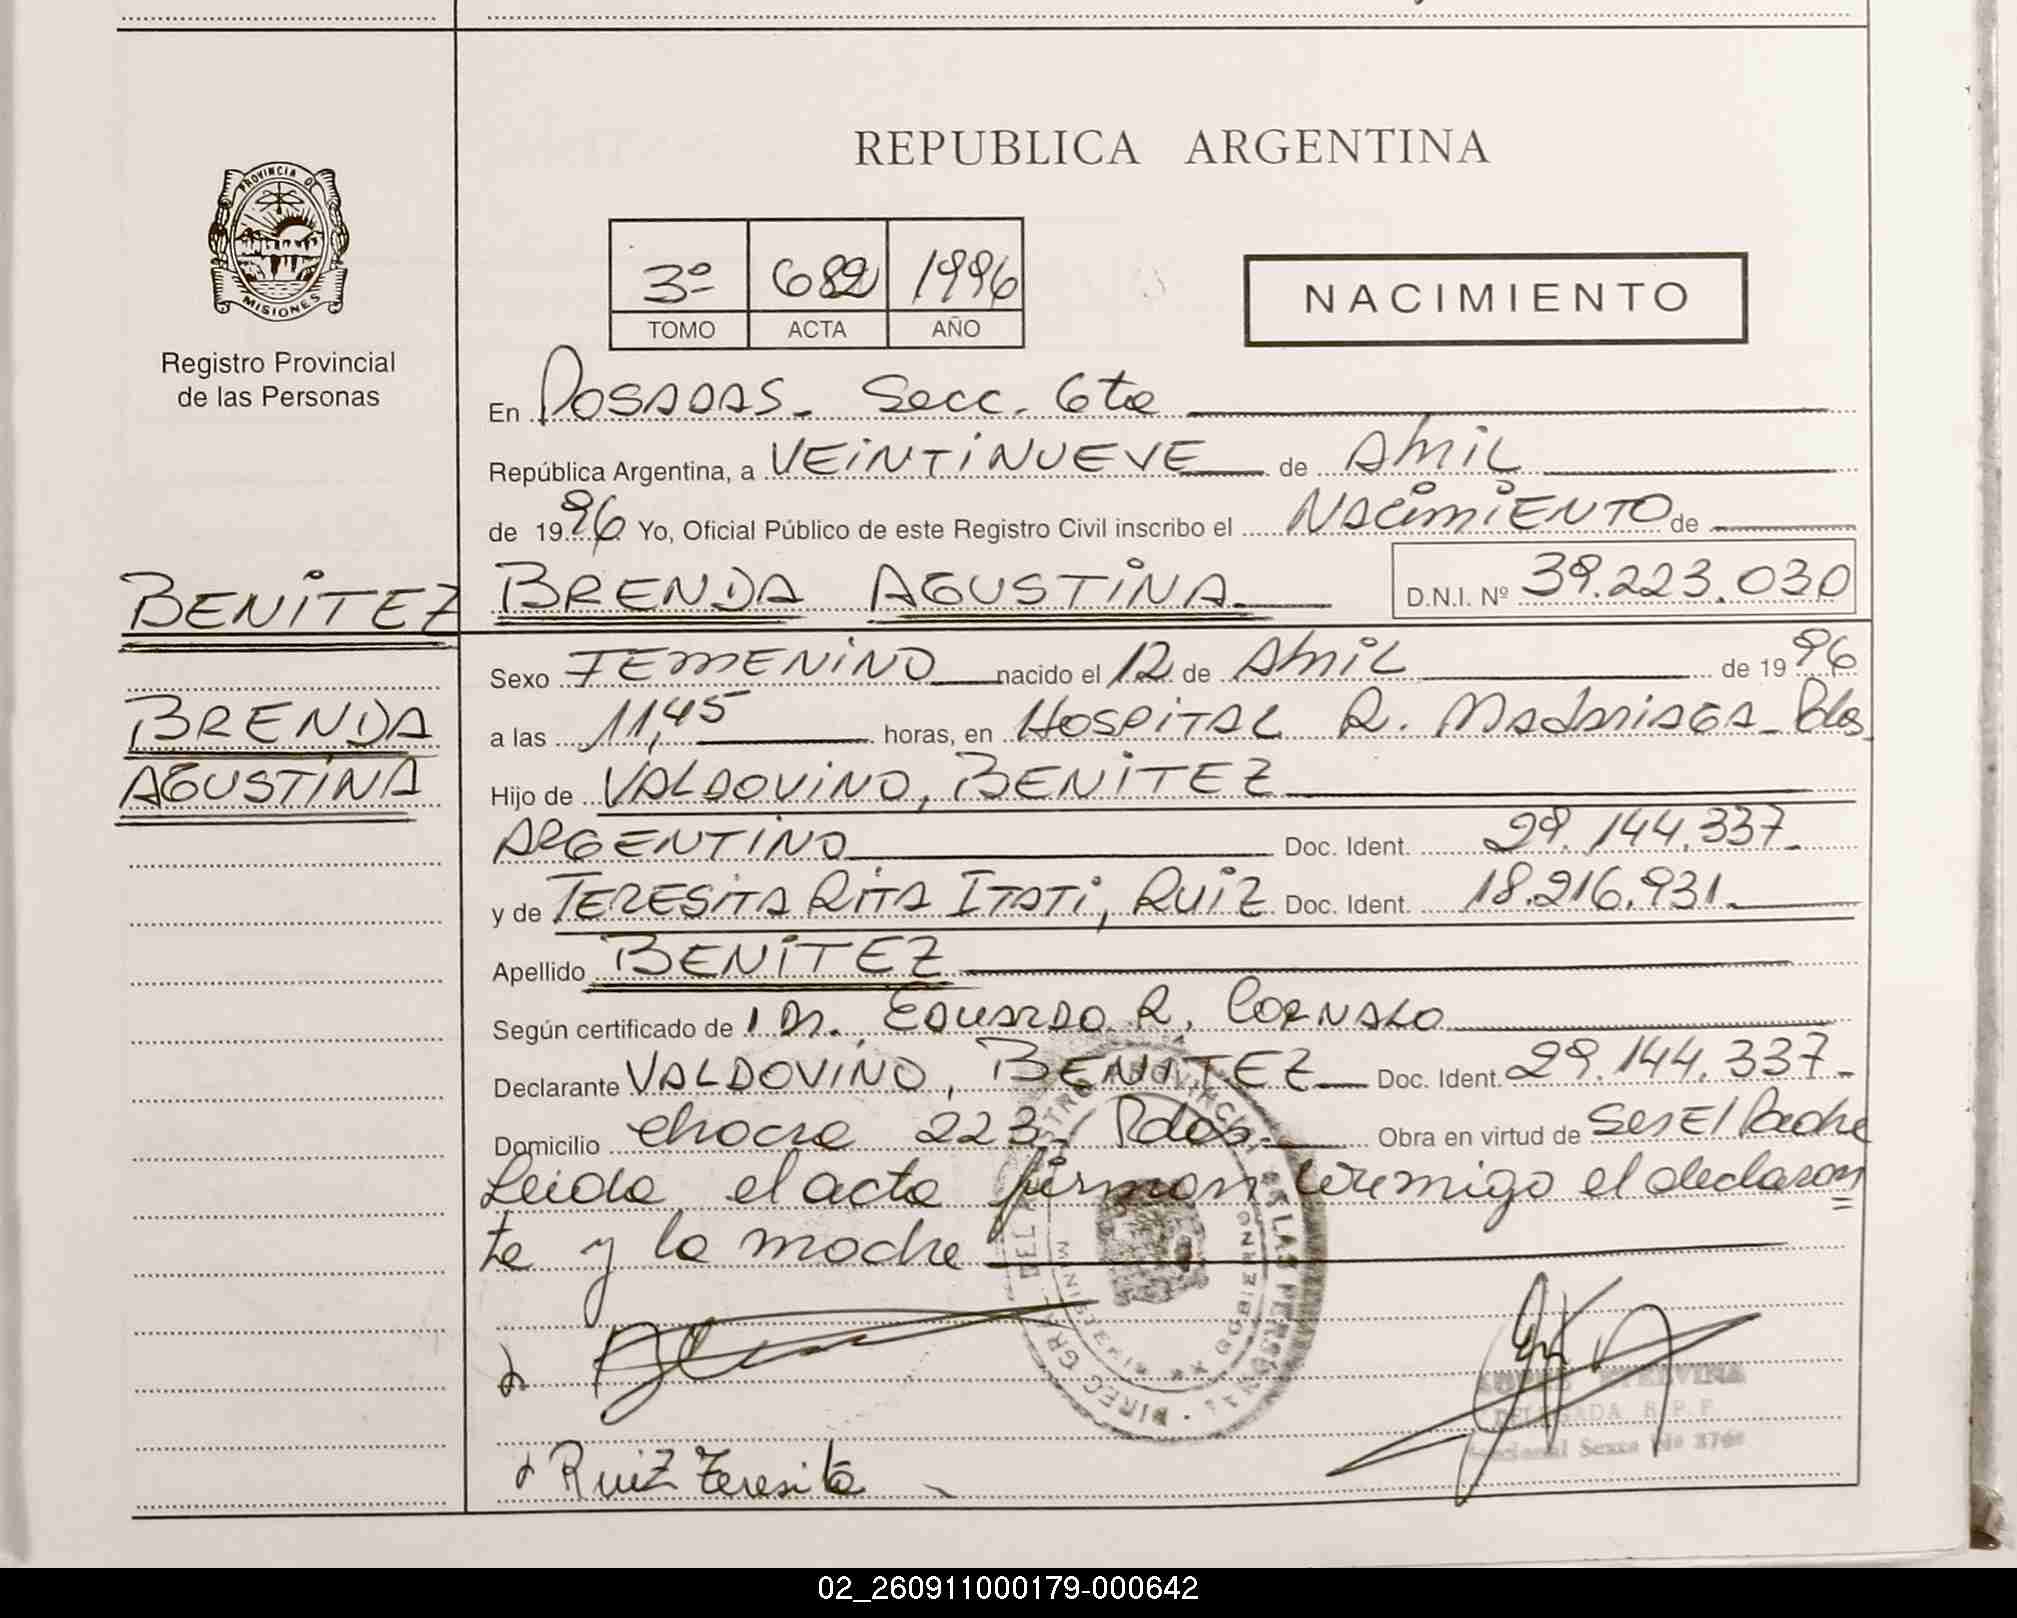 REPUBLICA ARGENTINA
PROVINCIA DE
MISIONES
Registro Provincial
de las Personas
3º 682 1996
TOMO ACTA AÑO
NACIMIENTO
En POSADAS. Secc. 6ta
República Argentina, a VEINTINUEVE de Abril
de 1996 Yo, Oficial Público de este Registro Civil inscribo el NACIMIENTO de
BENITEZ BRENDA AGUSTINA D.N.I. Nº 39.223.030
Sexo FEMENINO nacido el 12 de Abril de 1996
BRENDA
AGUSTINA
a las 11,45 horas, en HOSPITAL R. Madariaga - Pdas
Hijo de VALDOVINO, BENITEZ
ARGENTINO Doc. Ident. 29.144.337
y de TERESITA RITA ITATI, RUIZ Doc. Ident. 18.216.931
Apellido BENITEZ
Según certificado de Dr. EDUARDO R. CORNALO
Declarante VALDOVINO, BENITEZ Doc. Ident. 29.144.337
Domicilio chacra 223 Pdas. Obra en virtud de Ser El Padre
Leida el acta firman conmigo el declaran
te y la madre
Ruiz Teresita
DELEGADA R.P.P.